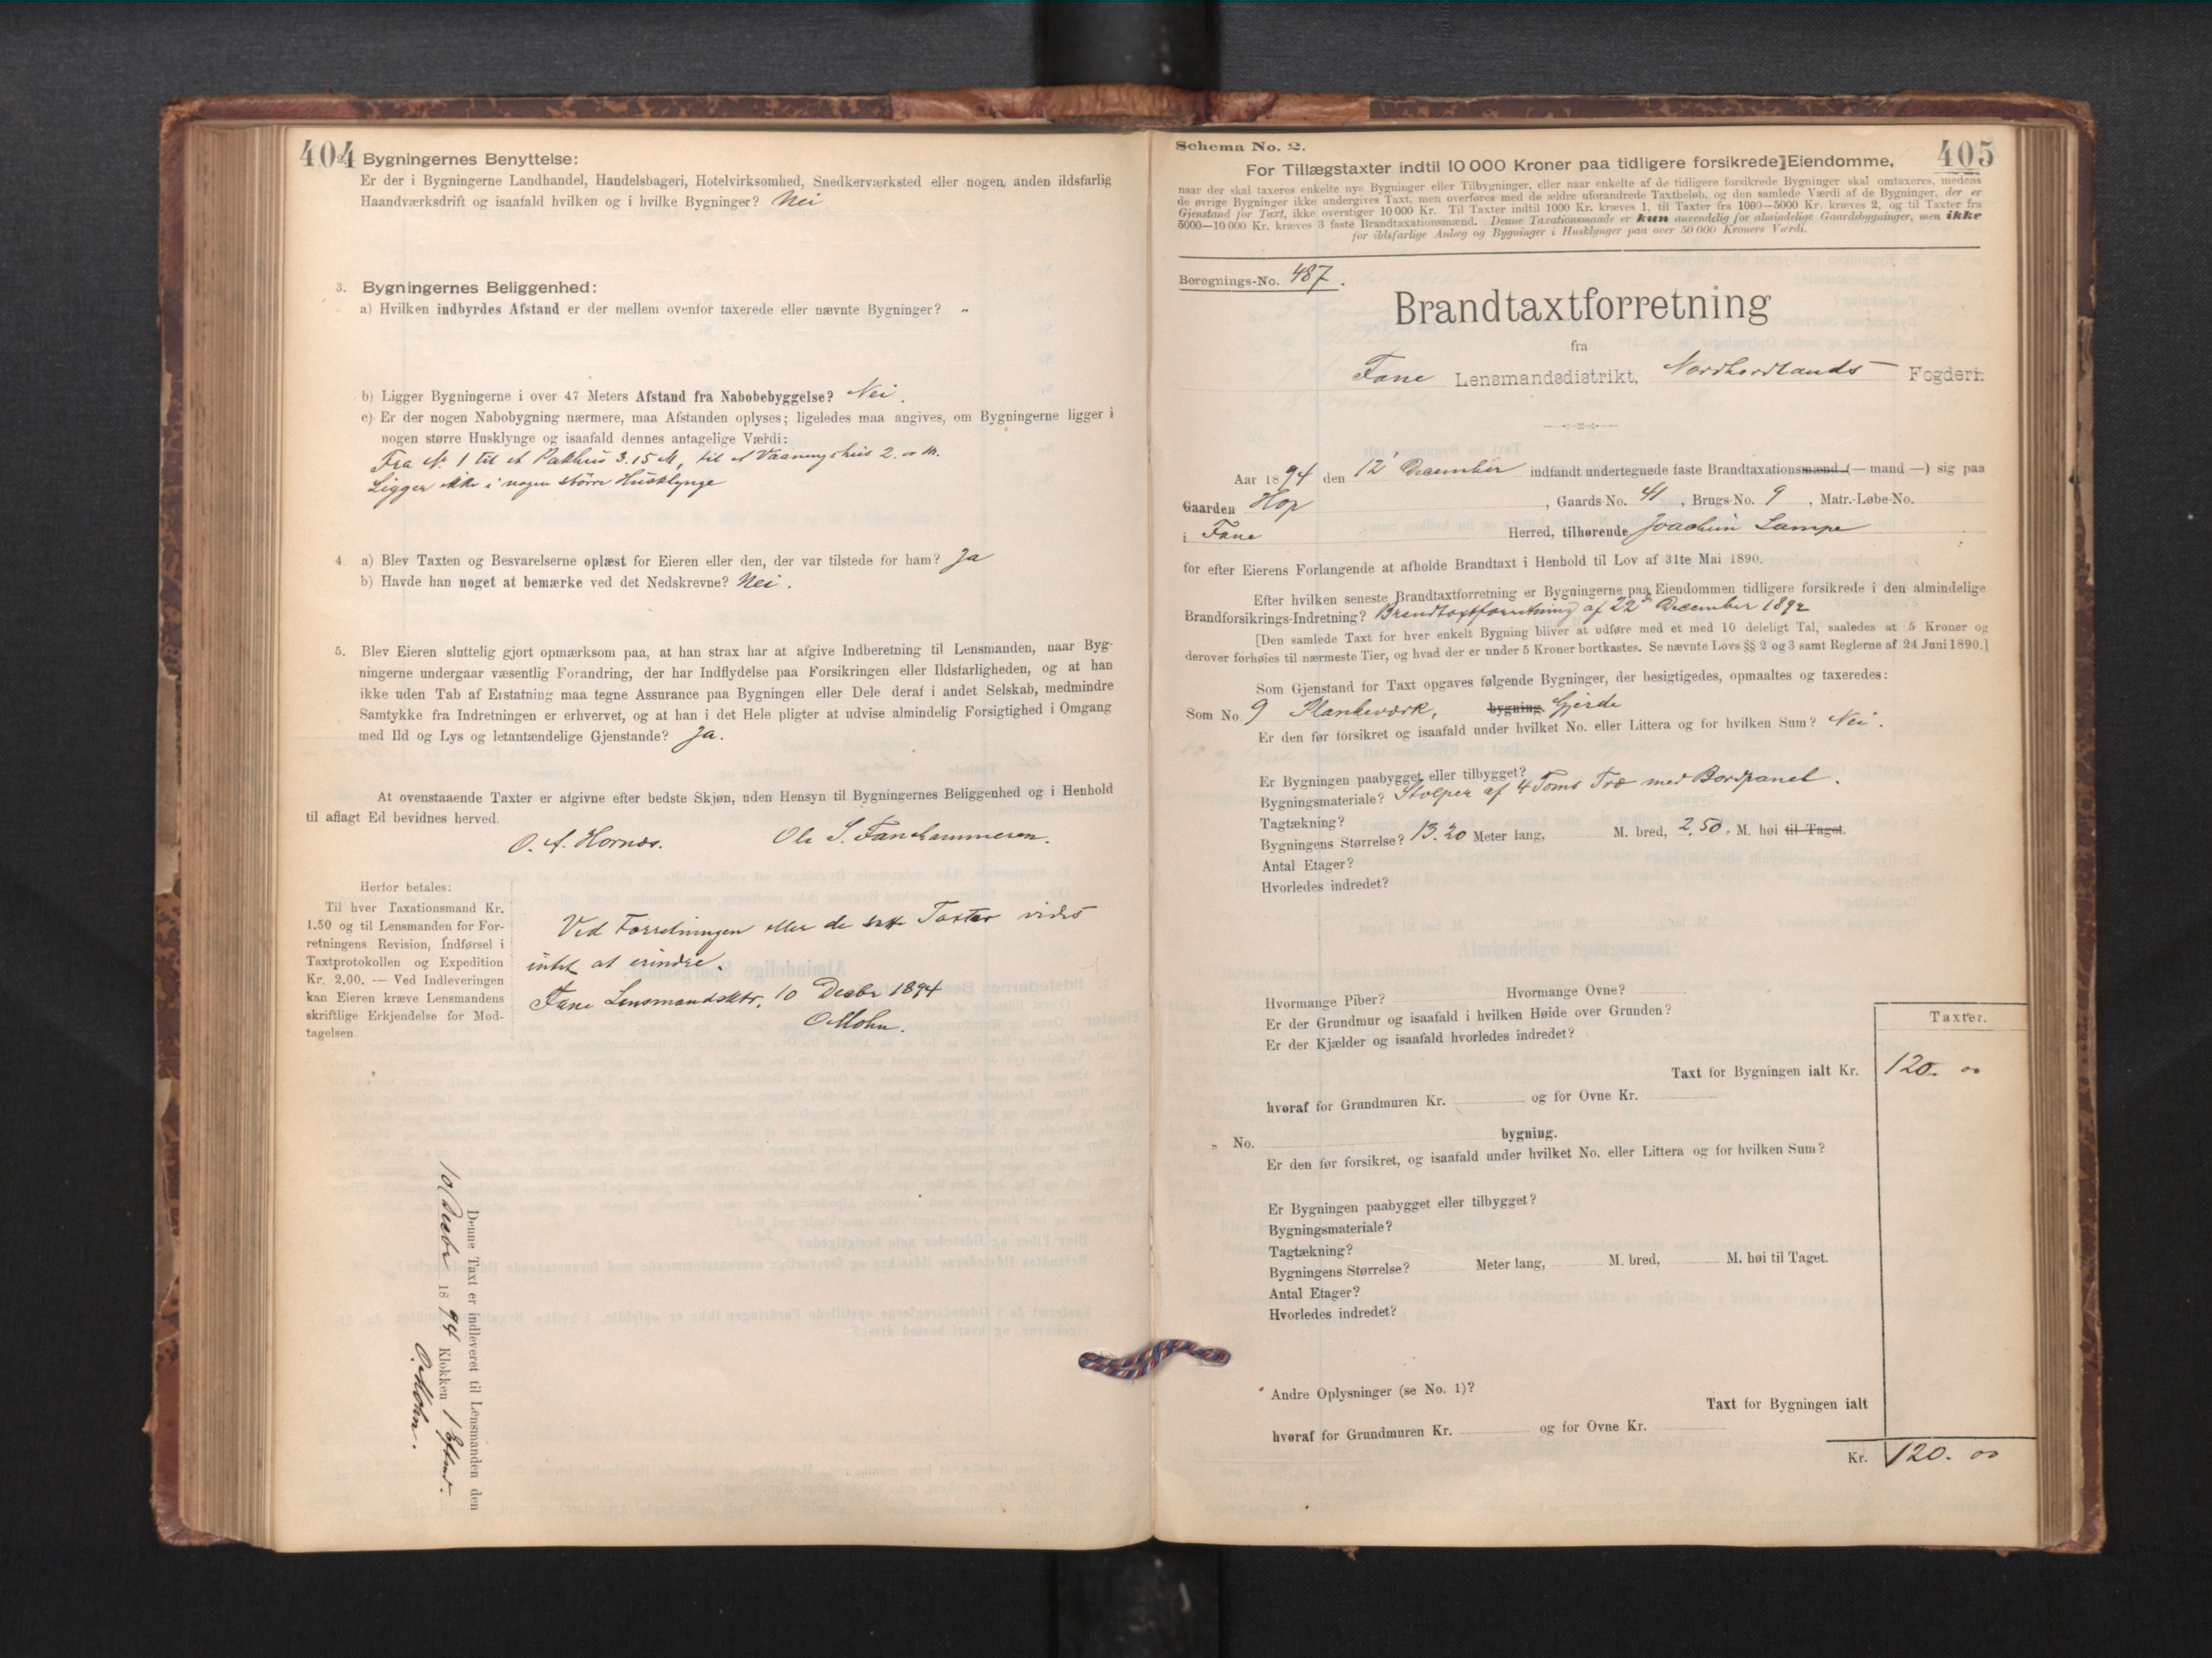 404
2. Bygningernes Benyttelse:
Er der i Bygningerne Landhandel, Handelsbageri, Hotelvirksomhed, Snedkerværksted eller nogen, anden ildsfarlig
Haandværksdrift og isaafald hvilken og i hvilke Bygninger? Nei
3. Bygningernes Beliggenhed:
a) Hvilken indbyrdes Afstand er der mellem ovenfor taxerede eller nævnte Bygninger? "
b) Ligger Bygningerne i over 47 Meters Afstand fra Nabobebyggelse? Nei.
c) Er der nogen Nabobygning nærmere, maa Afstanden oplyses; ligeledes maa angives, om Bygningerne ligger i
nogen større Husklynge og isaafald dennes antagelige Værdi:
Fra N. 1 til et Pakhus 3.15 M, til et Vaaningshus 2. M.
Ligger ikke i nogen større Husklynge
4. a) Blev Taxten og Besvarelserne oplæst for Eieren eller den, der var tilstede for ham? Ja
b) Havde han noget at bemærke ved det Nedskrevne? Nei.
5. Blev Eieren sluttelig gjort opmærksom paa, at han strax har at afgive Indberetning til Lensmanden, naar Byg-
ningerne undergaar væsentlig Forandring, der har Indflydelse paa Forsikringen eller Ildsfarligheden, og at han
ikke uden Tab af Erstatning maa tegne Assurance paa Bygningen eller Dele deraf i andet Selskab, medmindre
Samtykke fra Indretningen er erhvervet, og at han i det Hele pligter at udvise almindelig Forsigtighed i Omgang
med Ild og Lys og letantændelige Gjenstande? Ja.
At ovenstaaende Taxter er afgivne efter bedste Skjøn, uden Hensyn til Bygningernes Beliggenhed og i Henhold
til aflagt Ed bevidnes herved.
O. A. Hornæs. Ole S. Fanehammeren.
Herfor betales:
Til hver Taxationsmand Kr.
1.50 og til Lensmanden for For-
retningens Revision, Indførsel i
Taxtprotokollen og Expedition
Kr. 2.00. — Ved Indleveringen
kan Eieren kræve Lensmandens
skriftlige Erkjendelse for Mod-
tagelsen.
Ved Forretningen eller de satte Taxter vides
intet at erindre.
Fane Lensmandsktr. 10 Decbr 1894
O Mohn.
Denne Taxt er indleveret til Lensmanden den
10 Decbr 1894 Klokken 1 Efterm.
O. Mohn.
Schema No. 2.
405
For Tillægstaxter indtil 10 000 Kroner paa tidligere forsikrede Eiendomme,
naar der skal taxeres enkelte nye Bygninger eller Tilbygninger, eller naar enkelte af de tidligere forsikrede Bygninger skal omtaxeres, medens
de øvrige Bygninger ikke undergives Taxt, men overføres med de ældre uforandrede Taxtbeløb, og den samlede Værdi af de Bygninger, der er
Gjenstand for Taxt, ikke overstiger 10 000 Kr. Til Taxter indtil 1000 Kr. kræves 1, til Taxter fra 1000—5000 Kr. kræves 2, og til Taxter fra
5000—10 000 Kr. kræves 3 faste Brandtaxationsmænd. Denne Taxationsmaade er kun anvendelig for almindelige Gaardsbygninger, men ikke
for ildsfarlige Anlæg og Bygninger i Husklynger paa over 50 000 Kroners Værdi.
Beregnings-No. 487.
Brandtaxtforretning
fra
Fane Lensmandsdistrikt, Nordhordlands Fogderi.
Aar 1894 den 12' December indfandt undertegnede faste Brandtaxationsmænd (— mand —) sig paa
Gaarden Hop, Gaards-No. 41, Brugs-No. 9, Matr.-Løbe-No.
i Fane Herred, tilhørende Joachim Lampe
for efter Eierens Forlangende at afholde Brandtaxt i Henhold til Lov af 31te Mai 1890.
Efter hvilken seneste Brandtaxtforretning er Bygningerne paa Eiendommen tidligere forsikrede i den almindelige
Brandforsikrings-Indretning? Brandtaxtforretning af 22de December 1892
[Den samlede Taxt for hver enkelt Bygning bliver at udføre med et med 10 deleligt Tal, saaledes at 5 Kroner og
derover forhøies til nærmeste Tier, og hvad der er under 5 Kroner bortkastes. Se nævnte Lovs §§ 2 og 3 samt Reglerne af 24 Juni 1890.]
Som Gjenstand for Taxt opgaves følgende Bygninger, der besigtigedes, opmaaltes og taxeredes:
Som No. 9 Plankeværk, bygning. Gjerde
Er den før forsikret og isaafald under hvilket No. eller Littera og for hvilken Sum? Nei.
Er Bygningen paabygget eller tilbygget?
Bygningsmateriale? Stolper af 4 Toms Træ med Bordpanel.
Tagtækning?
Bygningens Størrelse? 13.20 Meter lang, M. bred, 2,50. M. høi til Taget.
Antal Etager?
Hvorledes indredet?
Hvormange Piber? Hvormange Ovne?
Er der Grundmur og isaafald i hvilken Høide over Grunden?
Er der Kjælder og isaafald hvorledes indredet?
Taxter.
Taxt for Bygningen ialt Kr. 120. 00
hvoraf for Grundmuren Kr. og for Ovne Kr.
" No. bygning.
Er den før forsikret, og isaafald under hvilket No. eller Littera og for hvilken Sum?
Er Bygningen paabygget eller tilbygget?
Bygningsmateriale?
Tagtækning?
Bygningens Størrelse? Meter lang, M. bred, M. høi til Taget.
Antal Etager?
Hvorledes indredet?
Andre Oplysninger (se No. 1)?
Taxt for Bygningen ialt
hvoraf for Grundmuren Kr. og for Ovne Kr.
Kr. 120. 00